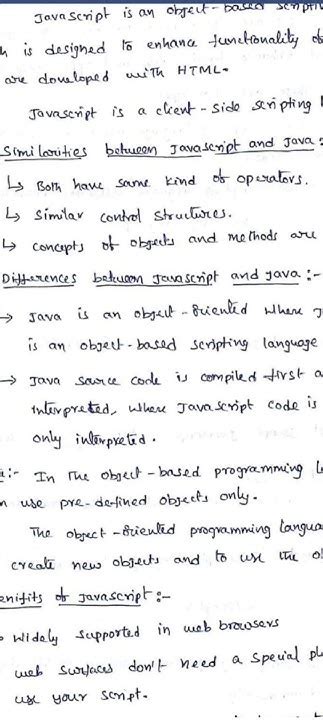 Javascript is an object-based
is designed to enhance functionality of
are developed with HTML.
Javascript is a client-side scripting
Similarities between Javascript and Java:
↳ Both have same kind of operators.
↳ Similar control structures.
↳ concepts of objects and methods are
Differences between Javascript and Java :-
→ Java is an object-oriented where
is an object-based scripting language
→ Java source code is compiled first a
interpreted, where Javascript code is
only interpreted.
:- In the object-based programming
use pre-defined objects only.
The object-oriented programming
create new objects and to use the
of Javascript:-
Widely supported in web browsers
web surfaces don't need a special
use your script.